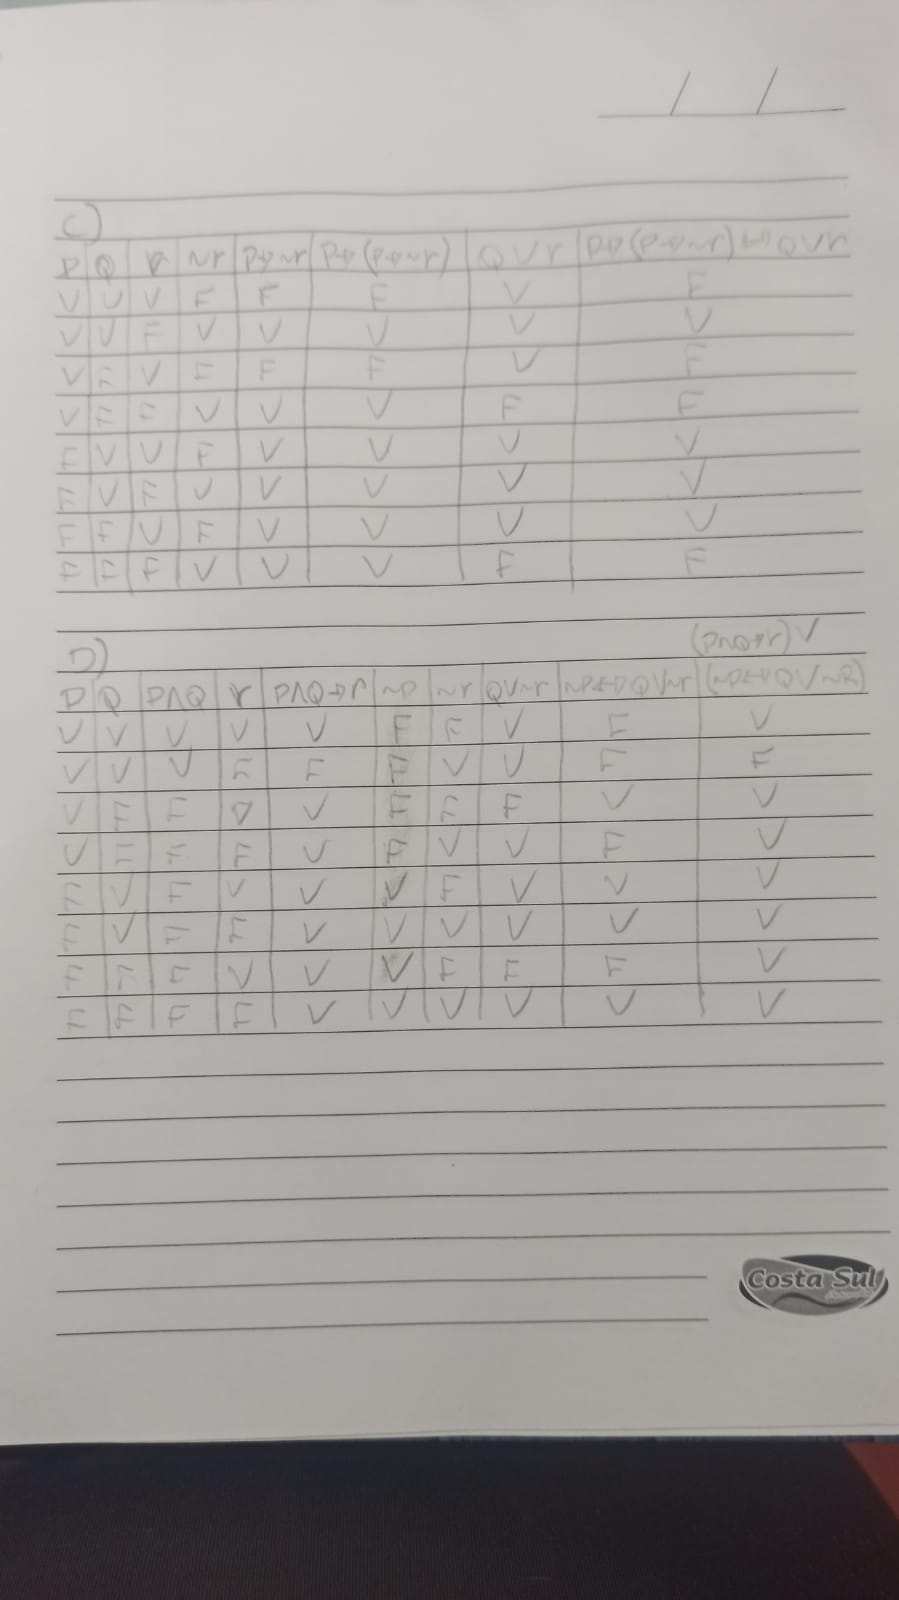 / /
C)
P Q r ~r P→~r P→(P→~r) Q∨r P→(P→~r)↔Q∨r
V V V F F F V F
V V F V V V V V
V F V F F F V F
V F F V V V F F
F V V F V V V V
F V F V V V V V
F F V F V V V V
F F F V V V F F
D) (P∧Q→r)∨
P Q P∧Q r P∧Q→r ~P ~r Q∨~r ~P↔Q∨~r (~P↔Q∨~R)
V V V V V F F V F V
V V V F F F V V F F
V F F V V F F F V V
V F F F V F V V F V
F V F V V V F V V V
F V F F V V V V V V
F F F V V V F F F V
F F F F V V V V V V
Costa Sul